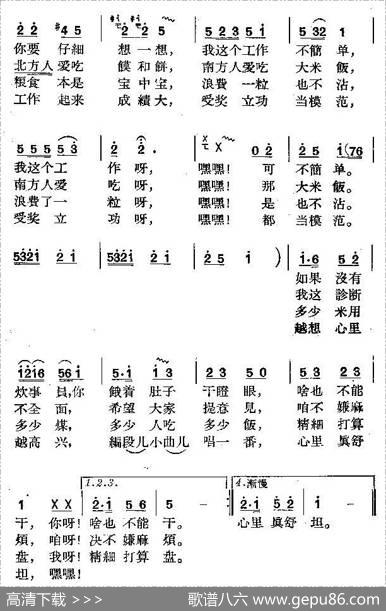 2̇ 2̇ #4 5 2̇ 2̇ 2̇ 5 2 3 2 5 1 5 3 2 1
你要 仔細 想一想, 我这个工作 不簡 单,
北方人爱吃 饃和餅, 南方人爱吃 大米 飯,
粮食 本是 宝中宝, 浪費 一粒 也不 沾,
工作 起来 成績大, 受奖 立功 当模 范,
5 5 5 5 3 2 2. X X 0 2 2 5 1 (76
我这个 工 作 呀, 嘿嘿! 可 不簡 单。
南方人 爱 吃 呀, 嘿嘿! 那 大米 飯。
浪費了 一 粒 呀, 嘿嘿! 是 也不 沾。
受奖 立 功 呀, 嘿嘿! 都 当模 范。
5321 2 1 5321 2 1 2 1 2 5 1 ) 1·6 5 2
如果 沒有
我这 診断
多少 米用
越想 心里
1216 561 5·1 1 3 2 3 5 0 5·1 5 2
炊事 員,你 餓着 肚子 干瞪 眼, 啥也 不能
不全 面, 希望 大家 提意 見, 咱不 嫌麻
多少 煤, 多少 人吃 多少 飯, 精細 打算
越高 兴, 編段儿小曲儿 唱一 番, 心里 眞舒
1.2.3. 4.漸慢
1 X X 2·1 5 6 5 - :‖ 2·1 5 2 1 - ‖
干, 你呀! 啥也 不能 干。 心里 眞舒 坦。
煩, 咱呀! 决不 嫌麻 煩。
盘, 我呀! 精細 打算 盘。
坦, 嘿嘿!
高清下载 >>> 歌谱八六 www.gepu86.com